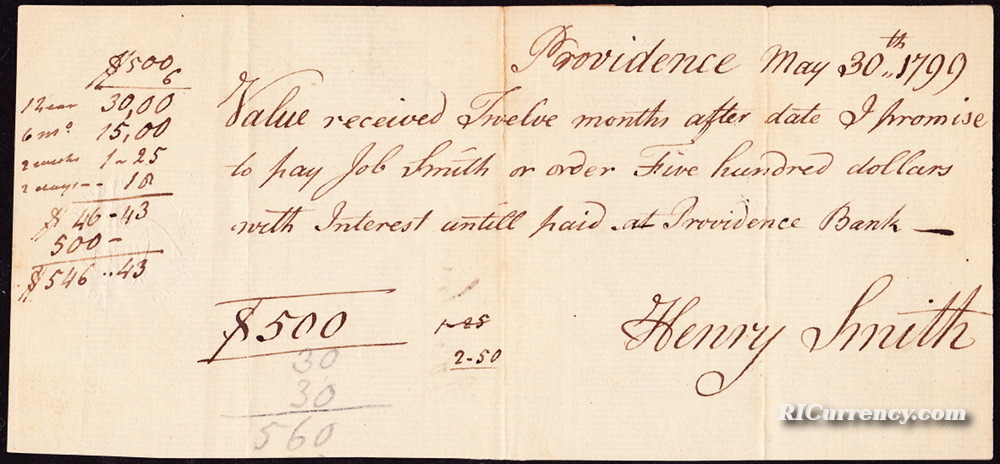 Providence May 30th 1799
Value received Twelve months after date I promise
to pay Job Smith or order Five hundred dollars
with Interest untill paid at Providence Bank —
Henry Smith
$500
30
30
560
1-25
2-50
$500
6
1 Year 30,00
6 mo 15,00
2 weeks 1-25
2 days -- 18
$46-43
500-
$546..43
RICurrency.com